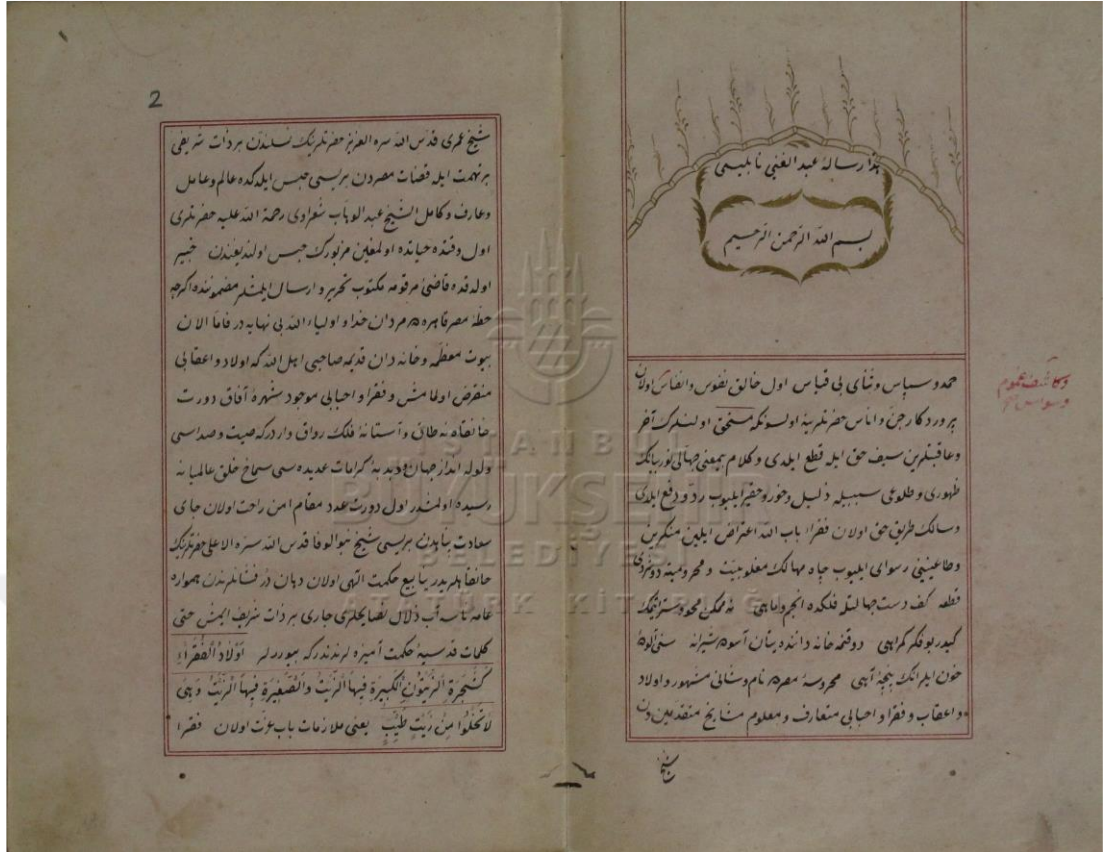 هذا رسالهٔ عبد الغنی نابلیسی
بسم الله الرحمن الرحیم
حمد و سپاس و ثنای بی قیاس اول خالق نفوس و انفاس اولان
پروردکار جن و اناس حضرتلرینه اولسونکه مستحق اولنلرك آخر
وعاقبتلرین سیف حق ایله قطع ایلدی و کلام بمعنی
ظهوری و طلوعی سببیله ذلیل و خور و حقیر ایلیوب رد و دفع ایلدی
و سالك طریق حق اولان فقراء باب الله اعتراض ایلین منکرین
وطاغینی رسوای ایلیوب چاه مهالك مغلوبیت و محرومیته دوندردی
قطعه كف دست جها لتله فلکده انجم و ماهی نه ممکن محو
کیدر بو فکر کمراهی دوقنمه خانه دانند
خون ایلر انك پنجهٔ آهی محروسهٔ مصرده نام و شانی مشهور و اولاد
و اعقاب و فقرا و احبابی متعارف و معلوم مشایخ متقدمین دن
شیخ
وکاشف غموم
وسواس
2
شیخ عمری قدس الله سره العزیز حضرتلرینك نسلندن بر ذات شریفی
بر تهمت ایله قضات مصردن بریسی حبس ایلدکده عالم و عامل
و عارف و کامل الشیخ عبد الوهاب شعراوی رحمة الله علیه حضرتلری
اول وقتده حیاتده اولمغین مزبورك حبس اولندیغندن خبیر
اولدقده قاضیٔ مرقومه مکتوب تحریر و ارسال ایلمشلر مضموننده اکرچه
خطهٔ مصر قاهره ده مردان خدا و اولیاء الله بی نهایه در فاما الان
بیوت معظمه و خانه دان قدیمه صاحبی اهل الله که اولاد و اعقابی
منقرض اولمامش و فقرا و احبابی موجود شهرهٔ آفاق دورت
خانقاه نه طاق و آستانهٔ فلك رواق واردرکه صیت و صداسی
ولوله انداز جهان و دبدبهٔ کرامات عدیده سی سماخ خلق عالمیانه
رسیده اولمشدر اول دورت عدد مقام امن راحت اولان جای
سعادت پناهدن بریسی شیخ بنو الوفا قدس الله سره الاعلی حضرتلرینك
خانقاهلریدر ینابیع حکمت الهی اولان دهان در فشانلرندن همواره
عامهٔ ناسه آب زلال نصایحلری جاری بر ذات شریف ایمش حتی
کلمات قدسیهٔ حکمت آمیزه لرندندرکه بیوررلر اَوْلَادُ الْفُقَرَاءِ
كَشَجَرَةِ الزَّيْتُونِ الْكَبِيرَةِ فِيهَا الزَّيْتُ وَالصَّغِيرَةِ فِيهَا الزَّيْتُ وَهِيَ
لَا تَخْلُوا مِنْ زَيْتٍ طَيِّبٍ یعنی ملازمات باب عزت اولان فقرا
İSTANBUL
BÜYÜKŞEHİR
BELEDİYESİ
ATATÜRK KİTAPLIĞI